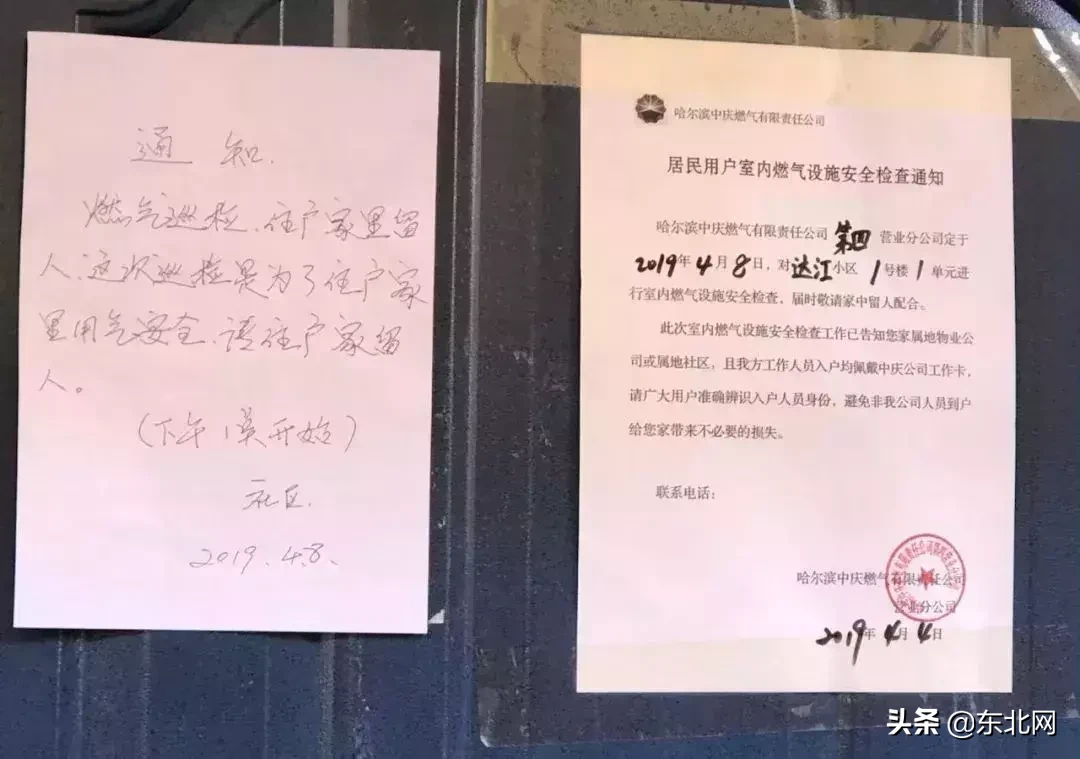 通 知.
燃气巡检、住户家里留
人.这次巡检是为了住户家
里用气安全.请住户家留
人。
(下午1点开始)
社区.
2019.4.8.
哈尔滨中庆燃气有限责任公司
居民用户室内燃气设施安全检查通知
哈尔滨中庆燃气有限责任公司 第四 营业分公司定于
2019年4月8日,对达江小区 1号楼1单元进
行室内燃气设施安全检查,届时敬请家中留人配合。
此次室内燃气设施安全检查工作已告知您家属地物业公
司或属地社区,且我方工作人员入户均佩戴中庆公司工作卡,
请广大用户准确辨识入户人员身份,避免非我公司人员到户
给您家带来不必要的损失。
联系电话:
哈尔滨中庆燃气有限责任公
营业分公司
2019年4月4日
头条 @东北网